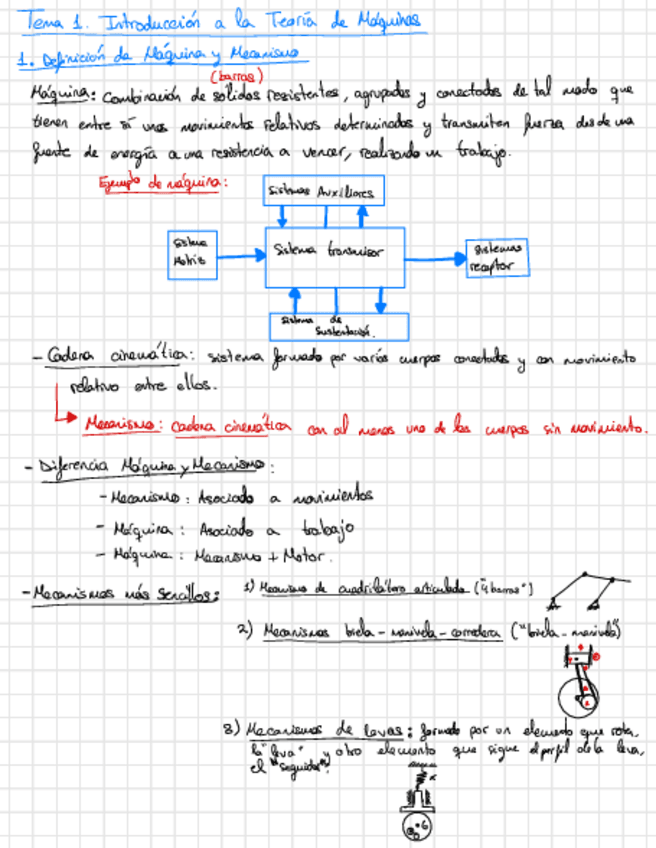 Tema 1. Introducción a la Teoría de Máquinas
1. Definición de Máquina y Mecanismo
(barras)
Máquina: Combinación de sólidos resistentes, agrupados y conectados de tal modo que
tienen entre sí unos movimientos relativos determinados y transmiten fuerza desde una
fuente de energía a una resistencia a vencer, realizando un trabajo.
Ejemplo de máquina:
Sistemas Auxiliares
Sistema
Motriz
Sistema transmisor
Sistemas
receptor
Sistema de
Sustentación.
- Cadena cinemática: sistema formado por varios cuerpos conectados y con movimiento
relativo entre ellos.
Mecanismo: Cadena cinemática con al menos uno de los cuerpos sin movimiento.
- Diferencia Máquina y Mecanismo:
- Mecanismo: Asociado a movimientos
- Máquina: Asociado a trabajo
- Máquina: Mecanismo + Motor.
- Mecanismos más sencillos:
1) Mecanismo de cuadrilátero articulado ("4 barras")
2) Mecanismos biela-manivela-corredera ("biela-manivela")
3) Mecanismos de levas: formado por un elemento que rota,
la "leva" y otro elemento que sigue el perfil de la leva,
el "seguidor".
K
G